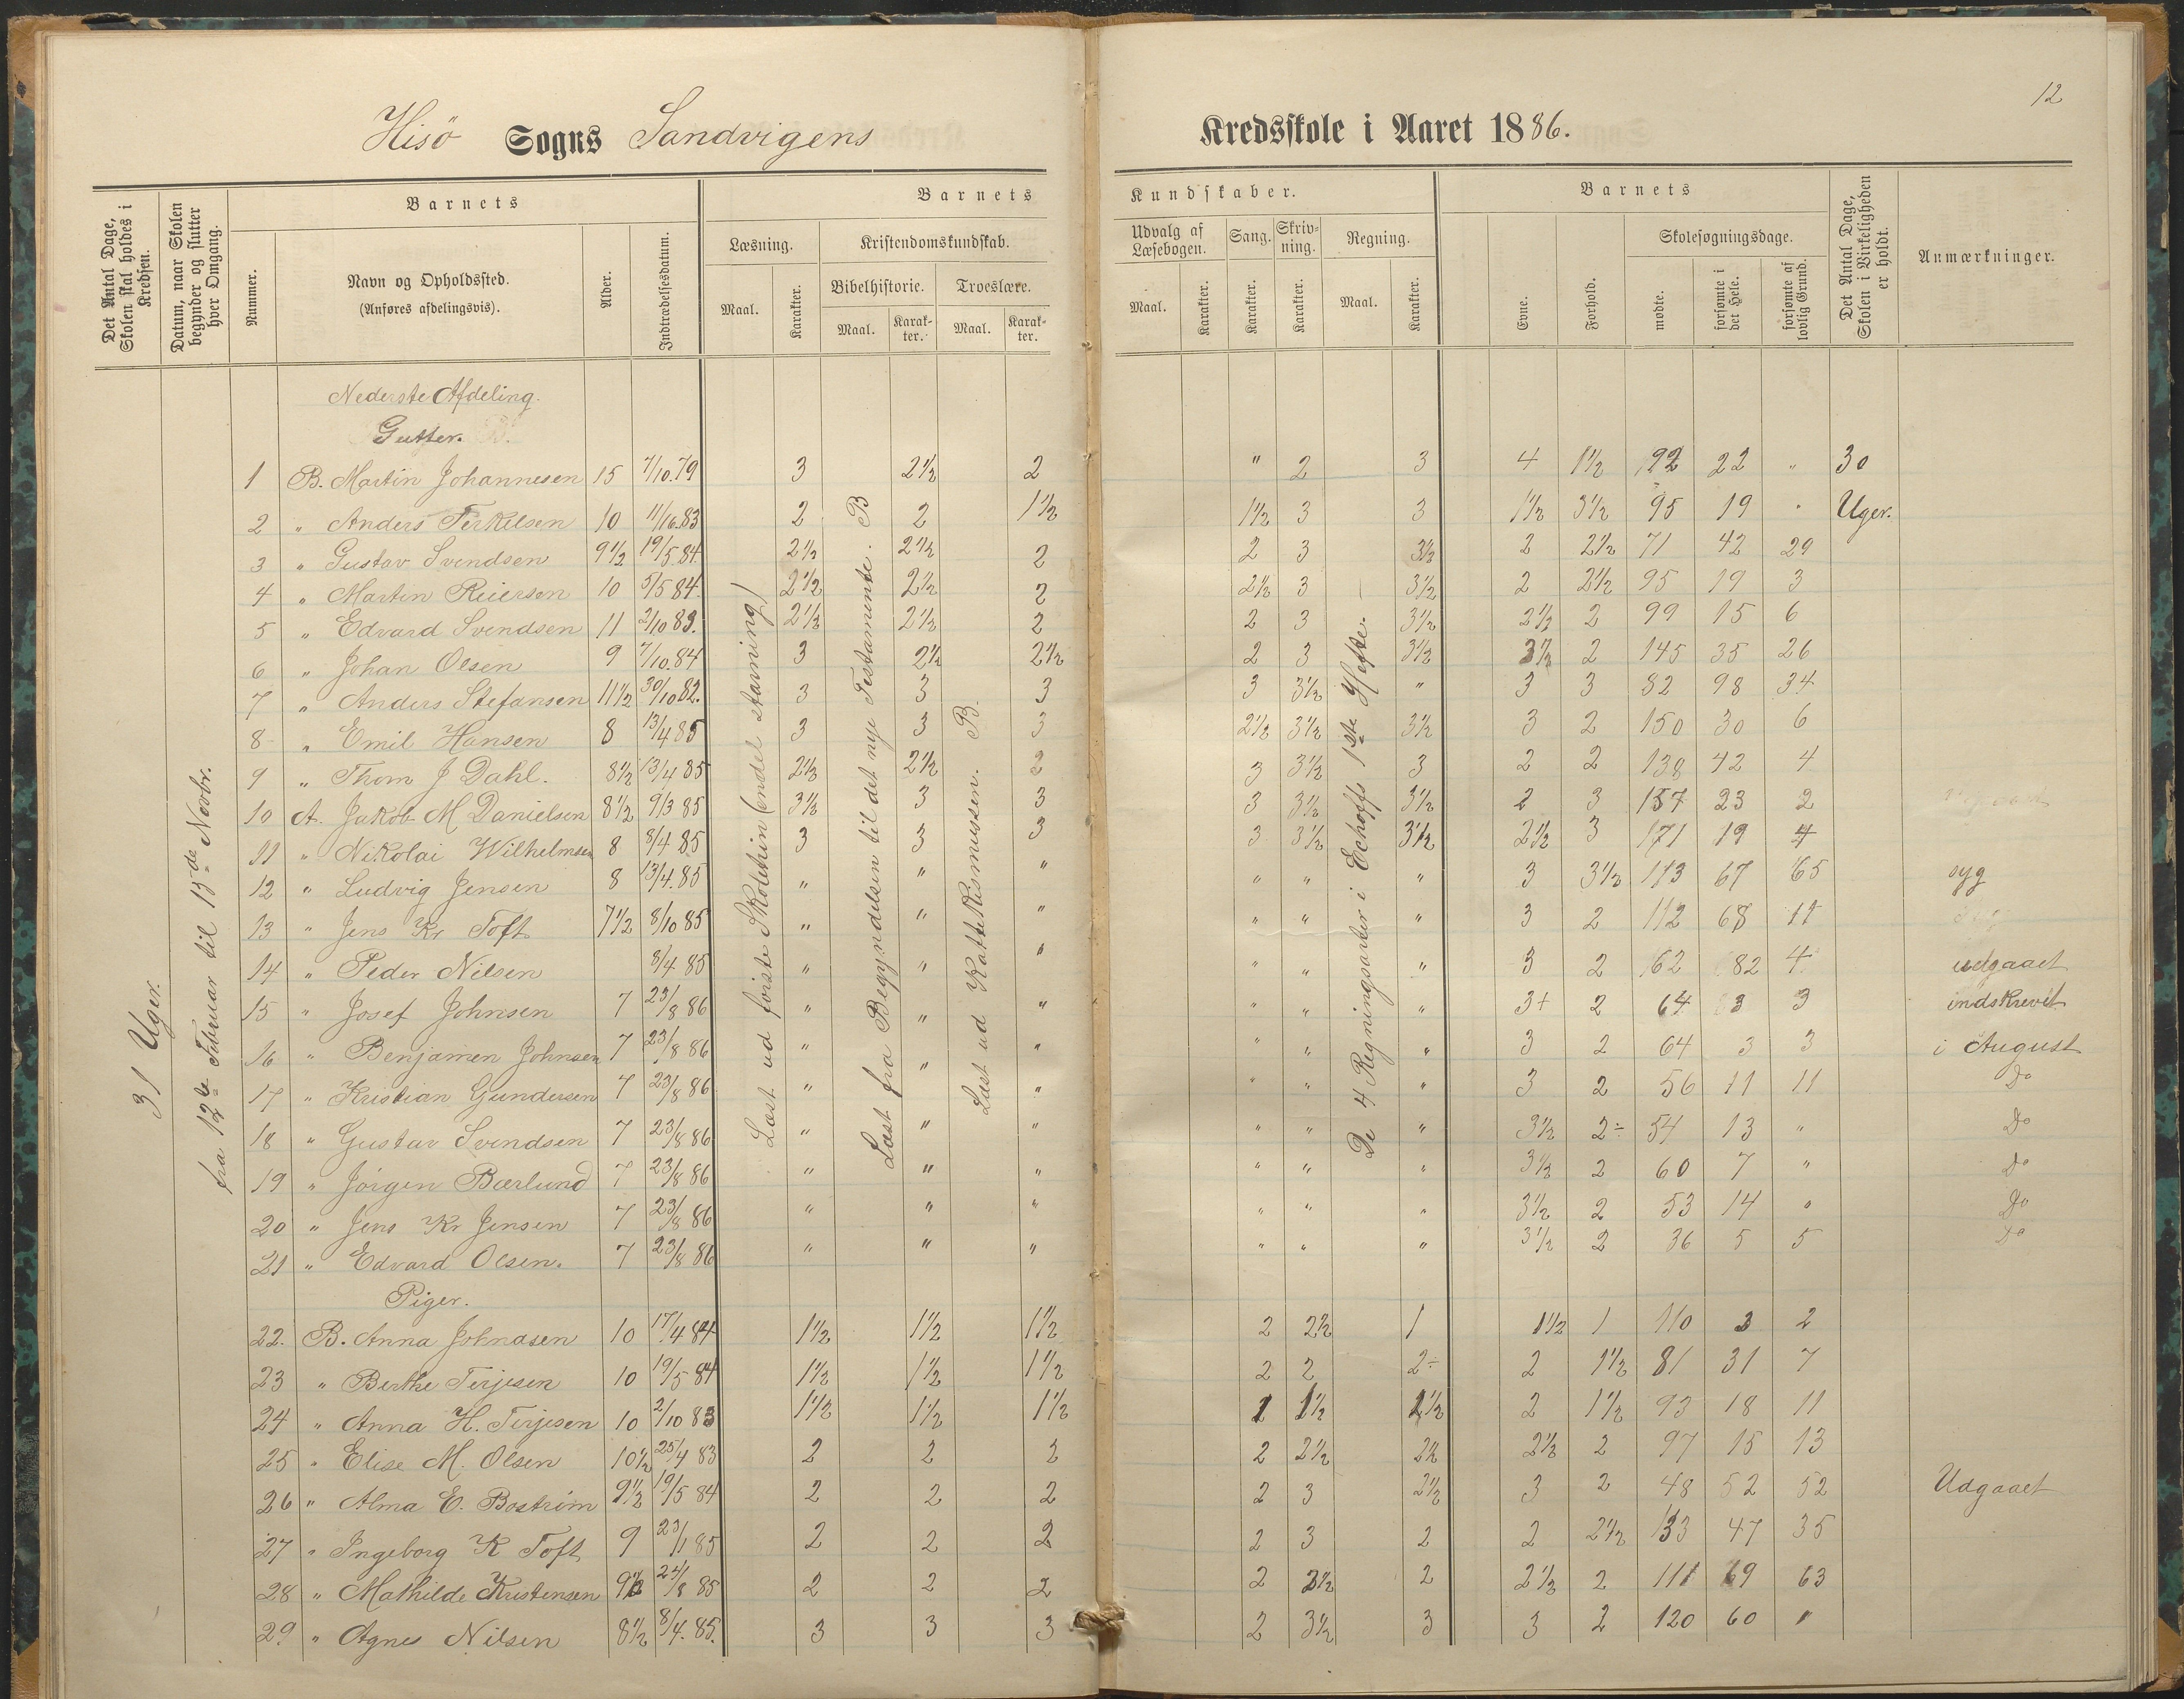 12
Hisö Sogns Sandvigens Kredsskole i Aaret 1886.
Det Antal Dage, Skolen skal holdes i Kredsen.
Datum, naar Skolen begynder og slutter hver Omgang.
Barnets
Nummer.
Navn og Opholdssted.
(Anføres afdelingsvis).
Alder.
Indtrædelsesdatum.
Barnets Kundskaber.
Læsning.
Maal.
Karakter.
Kristendomskundskab.
Bibelhistorie.
Maal.
Karakter.
Troeslære.
Maal.
Karakter.
Udvalg af Læsebogen.
Maal.
Karakter.
Sang.
Karakter.
Skrivning.
Karakter.
Regning.
Maal.
Karakter.
Barnets
Evne.
Forhold.
Skolesøgningsdage.
mødte.
forsømte i det Hele.
forsømte af lovlig Grund.
Det Antal Dage, Skolen i Virkeligheden er holdt.
Anmærkninger.
31 Uger.
fra 12te Februar til 15de Novbr.
Læst ud første Skoletrin (endel stavning)
Læst fra Begyndelsen til det nye Testamente. B
Læst ud Kattekismussen. B.
De 4 Regningsarter i Echoffs 1ste Hefte.
Nederste Afdeling.
Gutter.
1 B. Martin Johannesen 15 7/10.79 3 2½ 2 " 2 3 4 1½ 92 22 " 30
2 " Anders Terkelsen 10 11/10.83 2 2 1½ 1½ 3 3 1½ 3½ 95 19 " Uger.
3 " Gustav Svendsen 9½ 19/5.84 2½ 2½ 2 2 3 3½ 2 2½ 71 42 29
4 " Martin Reiersen 10 5/5 84 2½ 2½ 2 2½ 3 3½ 2 2½ 95 19 3
5 " Edvard Svendsen 11 2/10 83. 2½ 2½ 2 2 3 3½ 2½ 2 99 15 6
6 " Johan Olsen 9 7/10.84 3 2½ 2½ 2 3 3½ 3½ 2 145 35 26
7 " Anders Stefansen 11½ 30/10 82. 3 3 3 3 3½ " 3 3 82 98 34
8 " Emil Hansen 8 13/4 85 3 3 3 2½ 3½ 3½ 3 2 150 30 6
9 " Thom J Dahl. 8½ 13/4 85 2½ 2½ 2 3 3½ 3 2 2 138 42 4
10 A. Jakob M Danielsen 8½ 9/3 85 3½ 3 3 3 3½ 3½ 2 3 157 23 2
11 " Nikolai Wilhelmsen 8 8/4 85 3 3 3 3 3½ 3½ 2½ 3 171 19 4
12 " Ludvig Jensen 8 13/4.85 " " " " " " 3 3½ 113 67 65 syg
13 " Jens Kr Toft 7½ 8/10 85 " " " " " " 3 2 112 68 11
14 " Peder Nilsen 8/4 85 " " " " " " 3 2 62 82 4 udgaaet
15 " Josef Johnsen 7 23/8 86 " " " " " " 3+ 2 64 3 3 indskrevet
16 " Benjamen Johnsen 7 23/8 86 " " " " " " 3 2 64 3 3 i August
17 " Kristian Gundersen 7 23/8 86 " " " " " " 3 2 56 11 11 Do
18 " Gustav Svendsen 7 23/8 86 " " " " " " 3½ 2÷ 54 13 " Do
19 " Jörgen Bærlund 7 23/8 86 " " " " " " 3½ 2 60 7 " Do
20 " Jens Kr Jensen 7 23/8 86 " " " " " " 3½ 2 53 14 " Do
21 " Edvard Olsen. 7 23/8 86 " " " " " " 3½ 2 36 5 5 Do
Piger.
22. B. Anna Johnasen 10 17/4 84 1½ 1½ 1½ 2 2½ 1 1½ 1 110 3 2
23 " Berthe Terjesen 10 19/5 84 1½ 1½ 1½ 2 2 2÷ 2 1½ 81 31 7
24 " Anna H. Terjesen 10 2/10 83 1½ 1½ 1½ 1 1½ 1½ 2 1½ 93 18 11
25 " Elise M. Olsen 10½ 25/4 83 2 2 2 2 2½ 2½ 2½ 2 97 15 13
26 " Alma E. Boström 9½ 19/5 84 2 2 2 2 3 2½ 3 2 48 52 52 Udgaaet
27 " Ingeborg K Toft 9 23/1 85 2 2 2 2 3 2 2 2½ 133 47 35
28 " Mathilde Kristensen 9½ 24/8 85 2 2 2 2 3½ 2 2½ 2 111 69 63
29 " Agnes Nilsen 8½ 8/4.85. 3 3 3 2 3½ 3 3 2 120 60 "